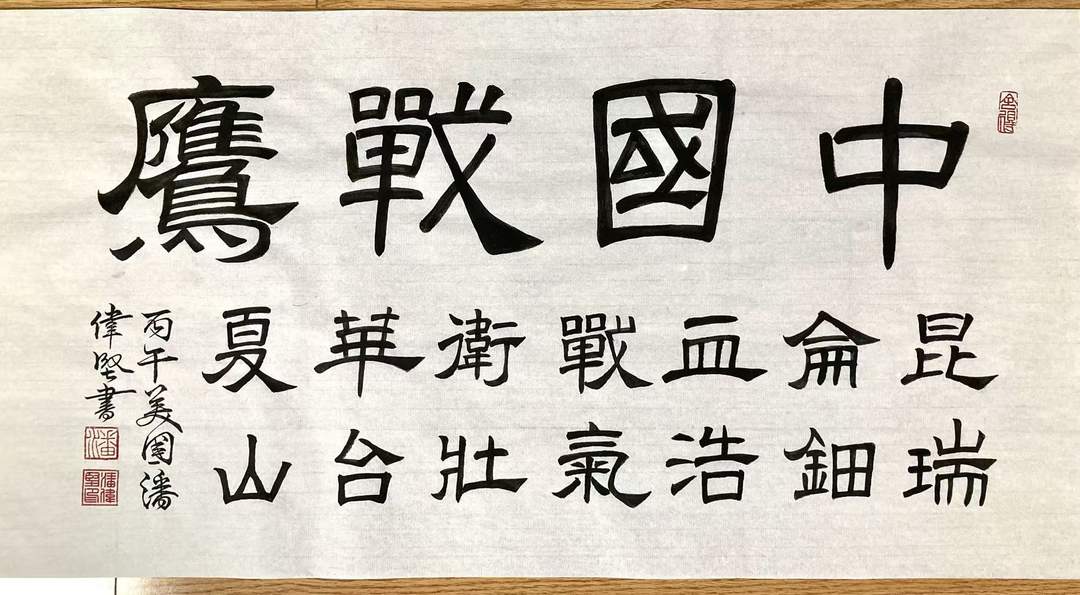 中國戰鷹
昆侖血戰衛華夏
瑞鈿浩氣壯台山
丙午美國潘
偉堅書
潘